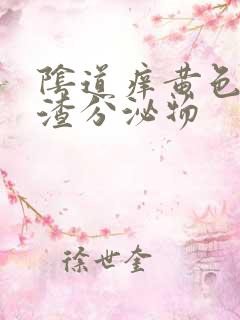 陰道痒黄色
渣分泌物
徐世奎